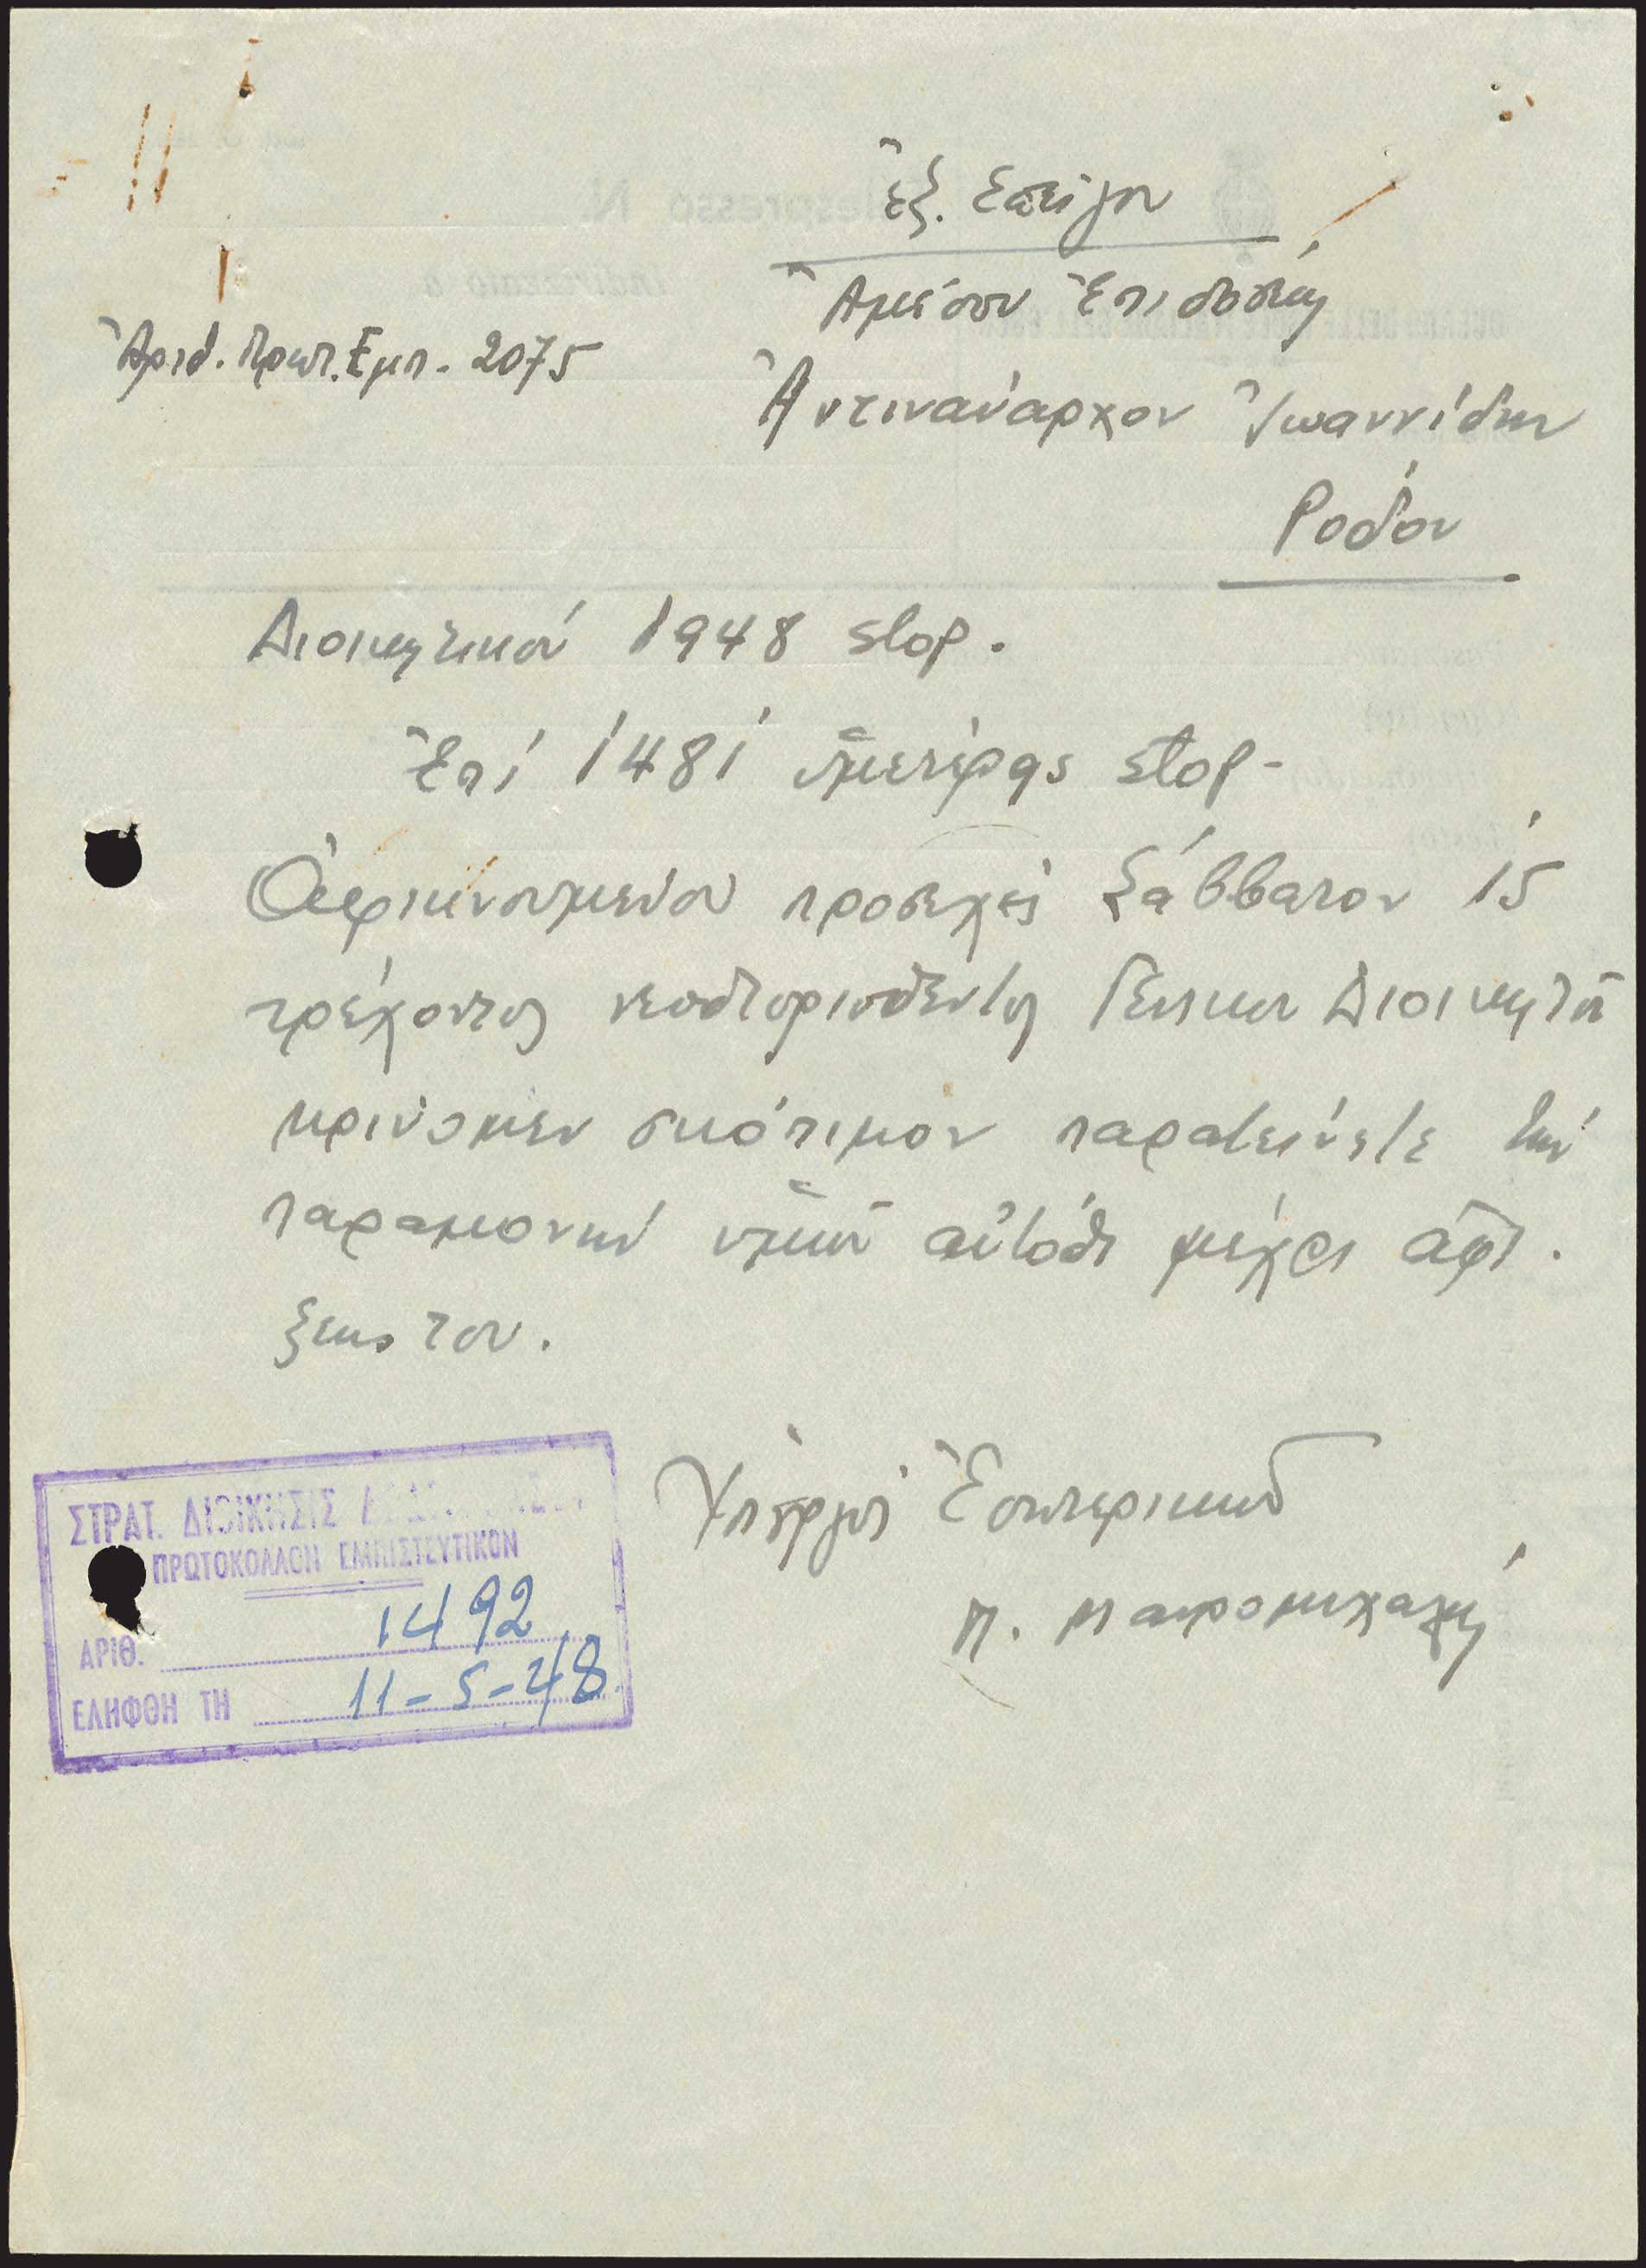 Ἐξ. Επείγον
Ἀμέσου Ἐπιδόσεως
Ἀριθ. Πρωτ. Εμπ. 2075
Ἀντιναύαρχον Ἰωαννίδην
Ρόδον
Διοικητικού 1948 stop.
Ἐπί 1481 ὑμετέρας stop -
Ἀφικνουμένου προσεχές Σάββατον 15
τρέχοντος νεοδιορισθέντος Γενικού Διοικητού
κρίνομεν σκόπιμον παρατείνετε την
παραμονήν υμών αὐτόθι μέχρι ἀφί.
ξεως του.
Υπουργός Ἐσωτερικών
Π. Μαυρομιχάλης
ΣΤΡΑΤ. ΔΙΟΙΚΗΣΙΣ
ΠΡΩΤΟΚΟΛΛΟΝ ΕΜΠΙΣΤΕΥΤΙΚΟΝ
ΑΡΙΘ. 1492
ΕΛΗΦΘΗ ΤΗ 11-5-48